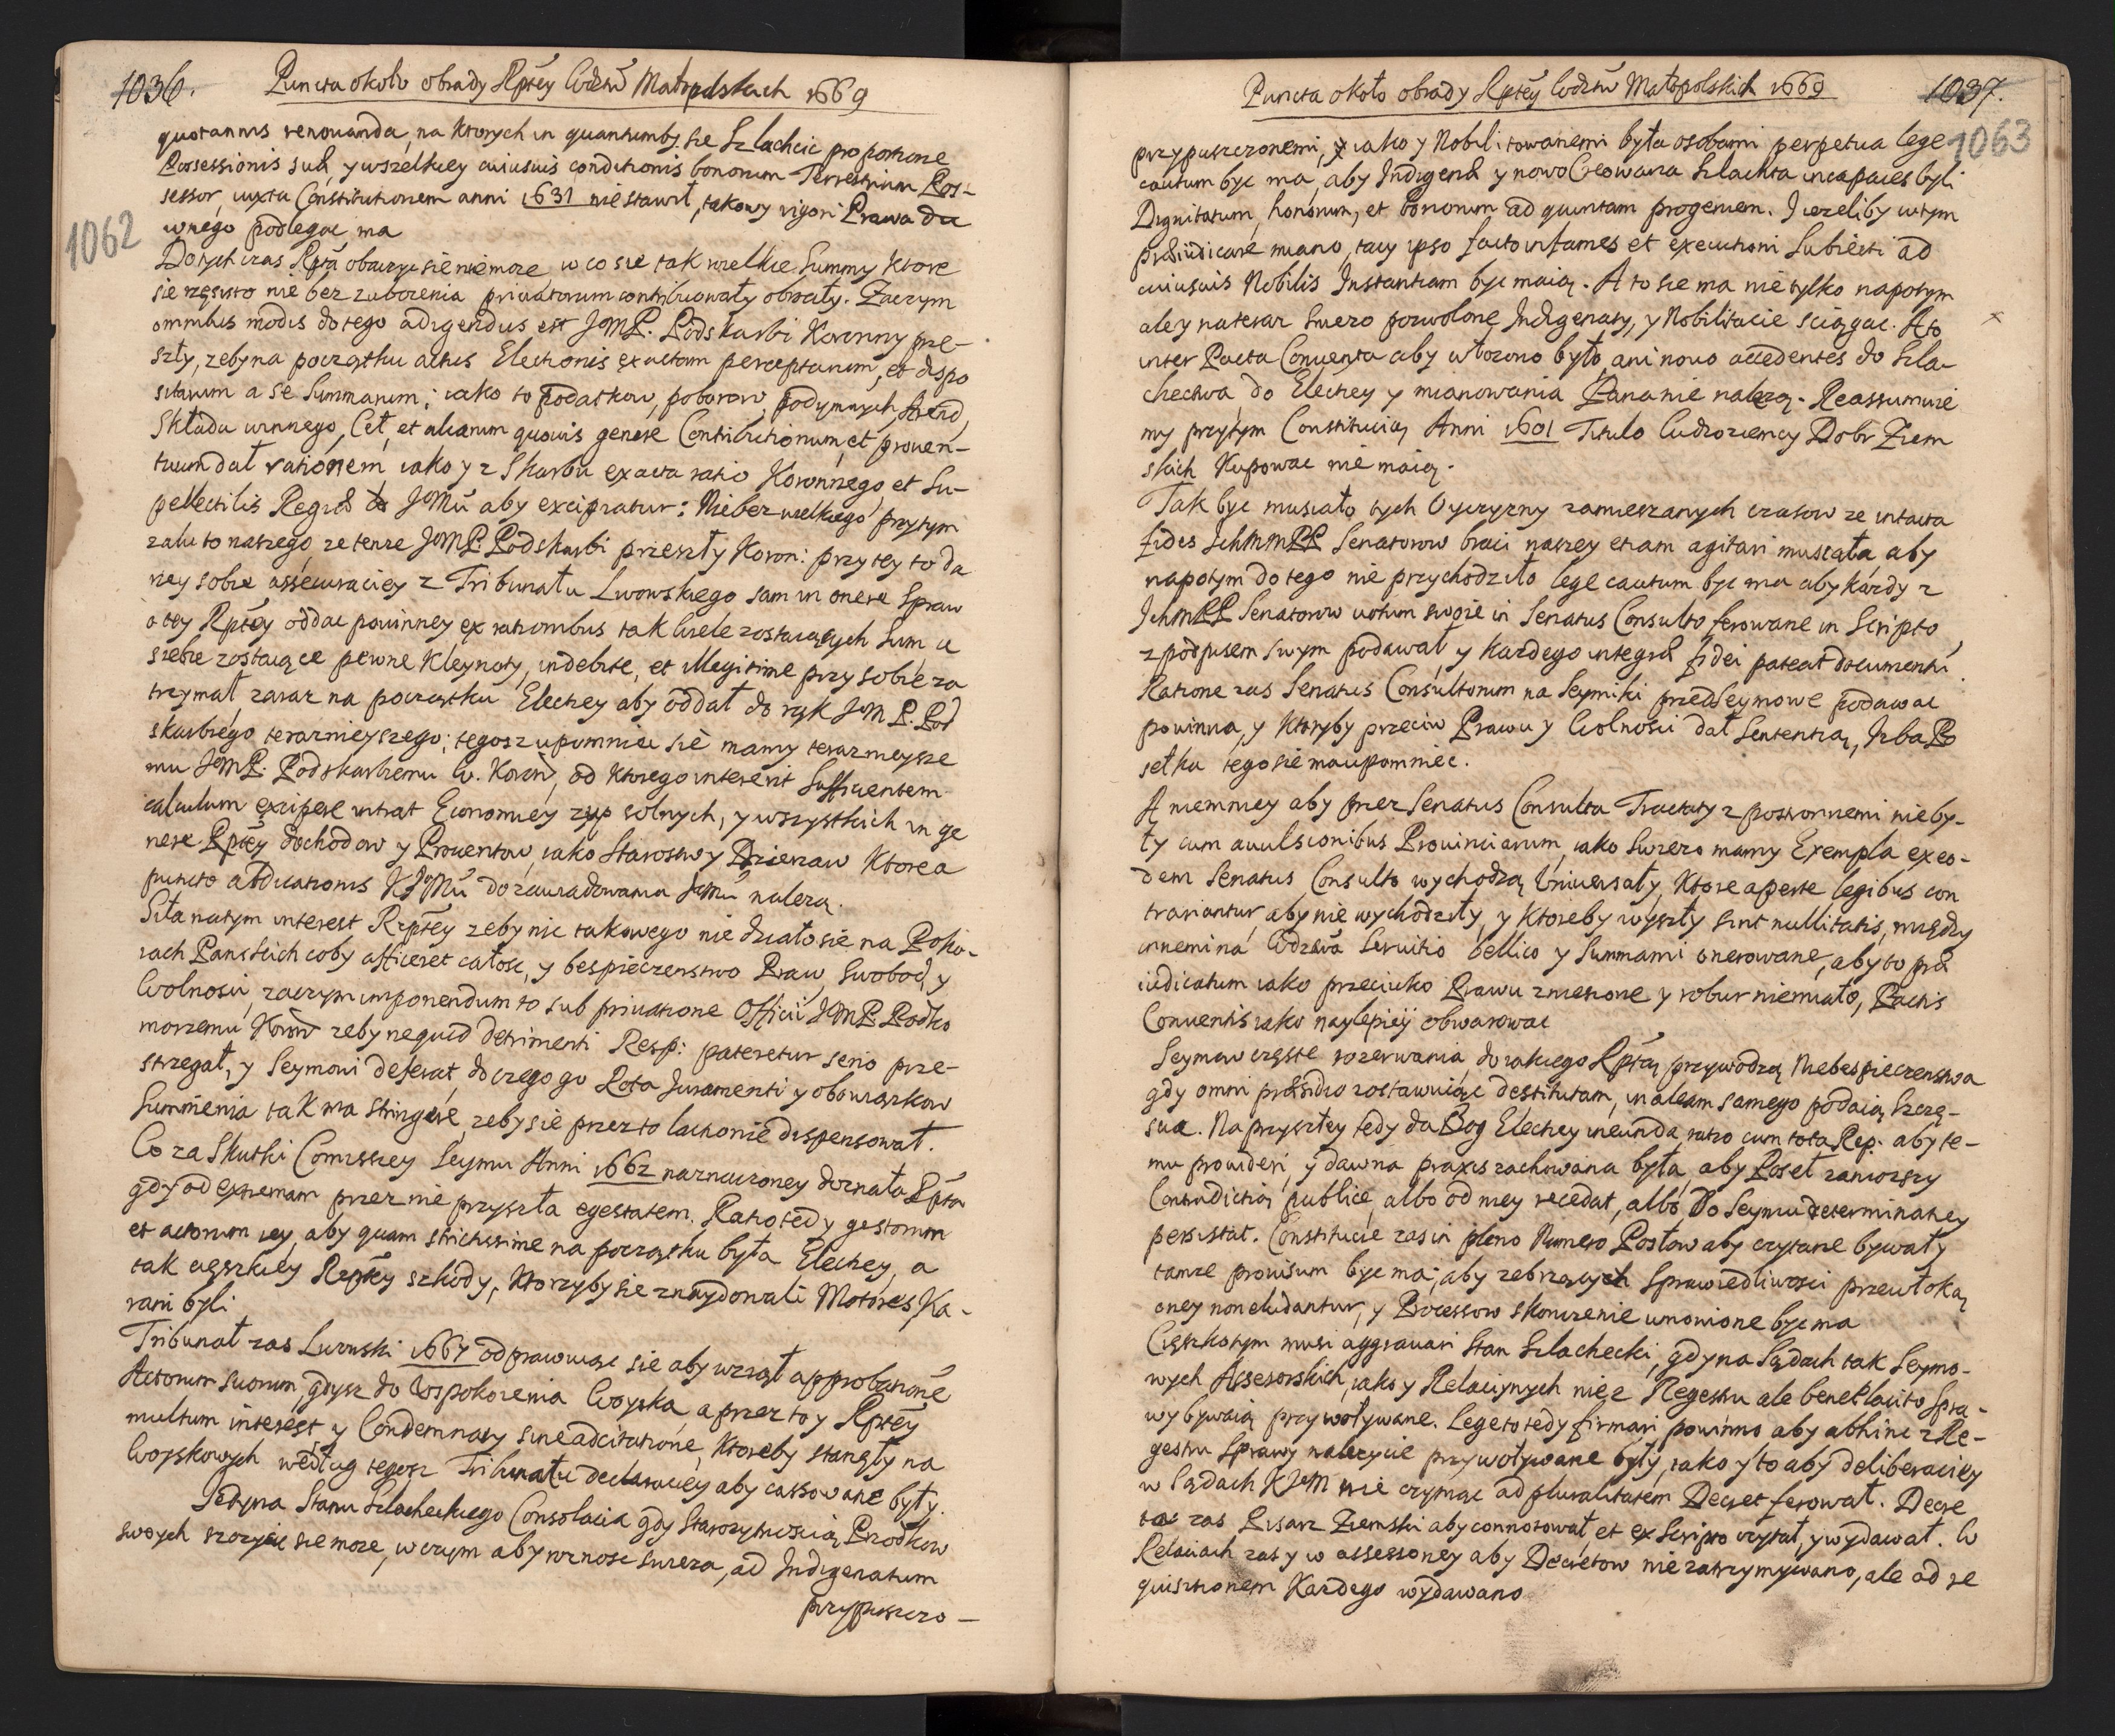 1036. Puncta około obrady Rptey Wdztw Małopolskich 1669
quotannis renouanda, na ktorych in quantumby sie Szlachcic proportione
Possessionis suæ, y wszelkiey cuiusuis conditionis bonorum Terrestrium Pos-
sessor, iuxta Constitutionem anni 1631 niestawił, takowy rigori Prawa da
wnego podlegac ma
1062
Dotychczas Rpta obaczyc sie niemoze w co sie tak wielkie Summy ktore
sie często nie bez zubozenia priuatorum contribuowały obrocały. Zaczym
omnibus modis do tego adigendus est JMP. Podskarbi Koronny prze-
szły, zeby na początku actus Electionis exactam perceptarum, et dispo
sitarum a se Summarum, iako to podatkow, poborow, podymnych, 
Składu winnego, Ceł, et aliarum quouis genere Contributionum, et prouen-
tuum dał rationem iako y z Skarbu exacta ratio Koronnego, et Su-
pellectilis Regiæ JKMci aby excipiatur: Niebez wielkiego przytym
zalu to naszego ze tenze JMP. Podskarbi przeszły Koron: przy tey to da
ney sobie assecuraciey z Tribunału Lwowskiego sam in onere Spraw
o tey Rptey oddac powinney ex rationibus tak wiele zostaiących Sum u
siebie zostaiące pewne Kleynoty, indebite, et illegitime przy sobie za
trzymał, zaraz na początku Elekcyey aby oddał do rąk JM P. Pod
skarbiego terazniejszego; tegosz upomniec sie mamy terazniejsze
mu JMP. Podskarbiemu W. Koron, od ktorego intererit Sufficientem
calculum excipere intrat Economiey zup solnych, y wszystkich in ge
nere Rptey dochodow y Prouentow, iako Starostw y Dzierzaw ktore a
puncto abdicationis KJMci do zawiadowania Jemu nalezą.
Siła natym interest Rzptey zeby nic takowego nie działo sie na Poko-
iach Panskich coby afficeret całosc, y bespieczenstwo Praw, Swobod, y
Wolnosci, zaczym imponendum to sub priuatione Officii JMP. Podko
morzemu Koron zeby nequid detrimenti Resp: pateretur serio prze-
strzegał, y Seymowi deferat, do czego go Rota Juramenti y obowiązkow
Summienia tak ma stringere, zeby sie przez to lachonie dispensował.
Co za Skutki Comissiey Seymu Anni 1662 naznaczoney doznała Rpta
gdy ad extremam przez nie przyszła egestatem. Ratio tedy gestorum
et actorum iey, aby quam strictissime na początku była Elekcyey, a
tak cięszkiey Rzptey szkody, ktorzyby sie znaydowali Motores, Ka-
rani byli
Tribunał zas Lwowski 1667 odprawuiąc sie aby wziął approbationē
Actorum suorum, gdysz do Uspokoienia Woyska, a przez to y Rptey
multum interest, y Condemnaty sine adcitatione, ktoreby stanęły na
Woyskowych według tegosz Tribunału declaraciey aby cassowane były.
Jedyna Stanu Szlacheckiego Consolacia gdy Starozytnoscią Przodkow
swoych szczycic sie moze, w czym aby roznosc swieza, ad Indigenatum
przypuszczo-
Puncta około obrady Rptey Wdztw Małopolskich 1669 1037.
1063
przypuszczonemi, iako y Nobilitowanemi była osobami perpetua lege
cautum byc ma, aby Indigenæ y nowo Creowana Szlachta incapaces byli
Dignitatum, honorum, et bonorum ad quintam progeniem. Jezeliby w tym
præiudicare miano, tacy ipso facto infames et executioni Subiecti ad
cuiusuis Nobilis Instantiam byc maią. A to sie ma nie tylko napotym
ale y nateraz swiezo pozwolone Indigenaty, y Nobilitacie sciągac. A to
inter Pacta Conuenta aby włozono było, ani nouo accedentes do Szla-
chectwa do Elekcyey y mianowania Pana nie nalezą. Reassumuie
my przytym Constitucią Anni 1601 Titulo Cudzoziemcy Dobr Ziem
skich Kupowac nie maią.
Tak byc musiało tych Oyczyzny zamieszanych czasow ze intacta
fides IchMMPP Senatorow braci naszey etiam agitari musiała, aby
napotym do tego nie przychodziło lege cautum byc ma aby kazdy z
IchmPP Senatorow uotum swoie in Senatus Consulto ferowane in Scripto
z podpisem swym podawał y kazdego integræ fidei pateat documentū.
Ratione zas Senatus Consultorum na Seymiki przedseymowe podawac
powinna, y ktoryby przeciw Prawu y Wolnosci dał Sententią, Izba Po
selska tego sie ma upomniec.
A niemniey aby przez Senatus Consulta Tractaty z postronnemi nie by-
ły cum auulsionibus Prouinciarum, iako swiezo mamy Exempla ex eo-
dem Senatus Consulto wychodzą Uniwersały, ktore aperte legibus con
trariantur, aby nie wychodziły, y ktoreby wyszły sint nullitatis, między
innemi na Wdztwa Seruitio bellico y Summami onerowane, aby to præ
iudicatum iako przeciwko Prawu zniesione y robur niemiało, Pactis
Conuentis iako naylepiey obwarowac
Seymow częste rozerwania, do iakiego Rptą przywodzą Niebespieczenstwa
gdy omni præsidio zostawuiąc destitutam, in aleam samego podaią Szczę-
scia. Na przyszłey tedy da Bog Elekcyey ineunda ratio cum tota Rep. aby te-
mu prouideri, y dawna praxis zachowana była, aby Poseł zaniozszy
Contradictią publice, albo od niey recedat, albo Do Seymu determinatey
persistat. Constitucie zas in pleno Numero Posłow aby czytane bywały
tamze prouisum byc ma; aby zebrzących Sprawiedliwosci przewłoką
oney non eludantur, y Processow skonczenie umowione byc ma
Cięszko tym musi aggrauari Stan Szlachecki, gdy na Sądach tak Seymo-
wych Assesorskich, iako y Relacyinych nie z Regestru ale beneplacito Spra-
wy bywaią przywoływane. Lege to tedy firmari powinno aby abhinc z Re-
gestru Sprawy nalezycie przywoływane były, iako y to aby deliberaciey
w Sądach KJM nie czyniąc ad pluralitatem Decret ferował. Decre
ta zas Pisarz Ziemski aby connotował, et ex Scripto czytał, y wydawał. W
Relaciach zas y w assessoriey aby Decretow nie zatrzymywano, ale ad re
quisitionem Kazdego wydawano